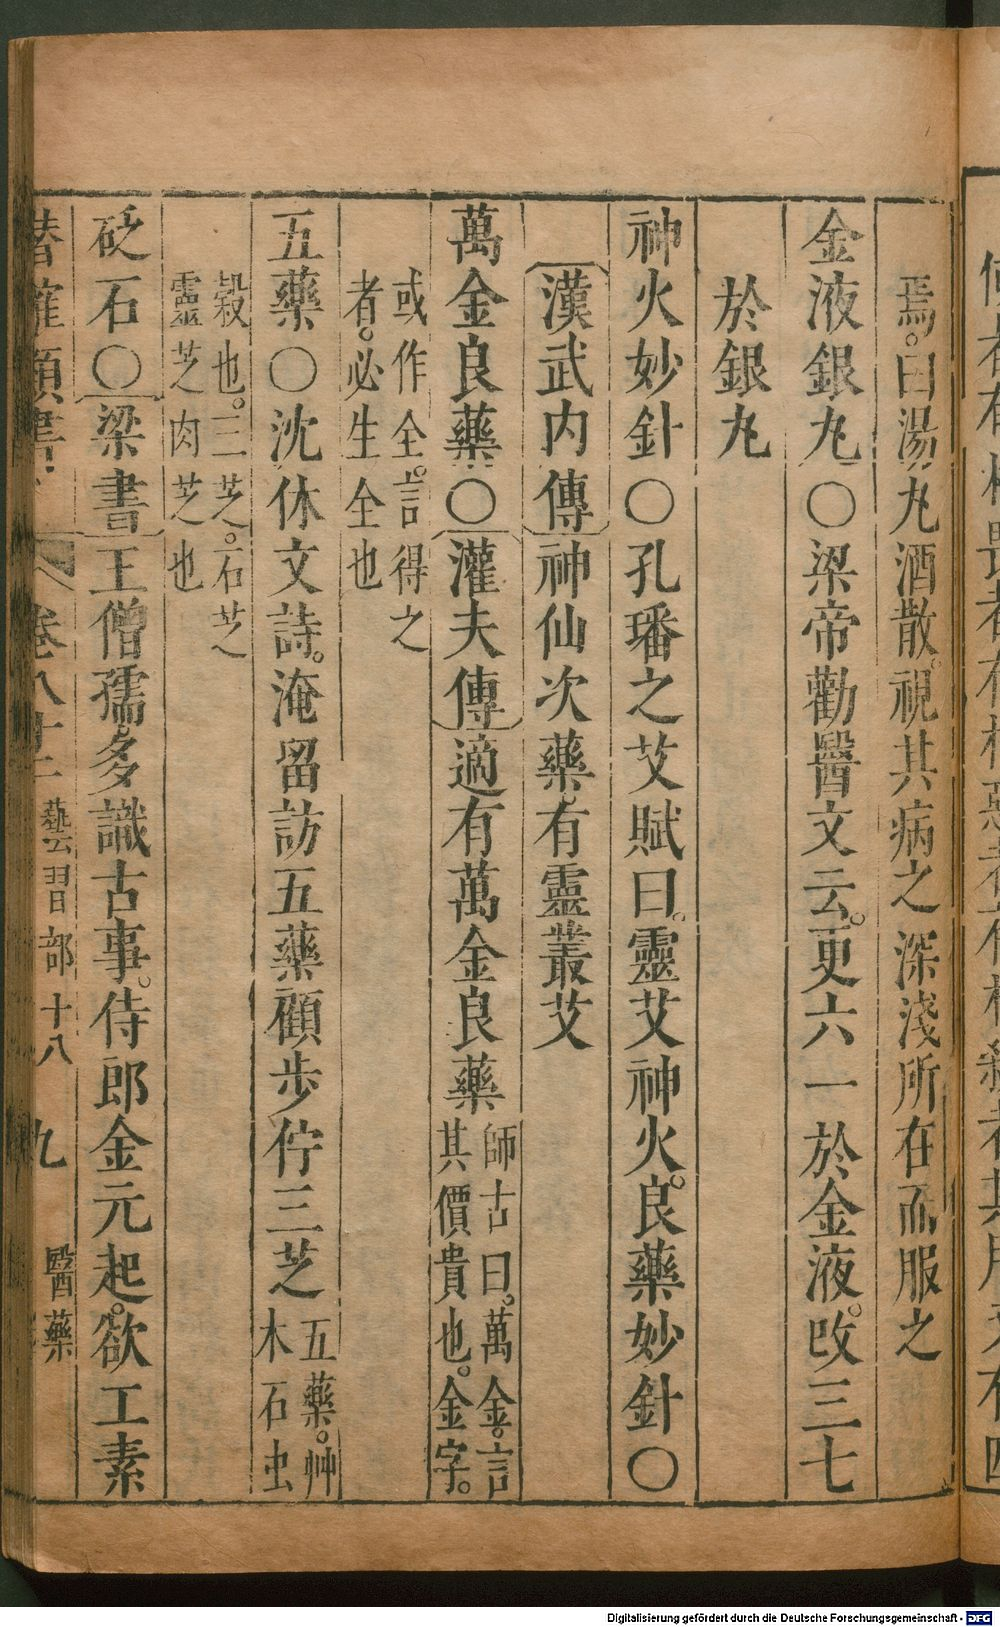 焉。曰湯丸酒散。視其病之深淺所在而服之
金液銀丸〇梁帝勸醫文云。更六一於金液。改三七
於銀丸
神火妙針〇孔璠之艾賦曰。靈艾神火。良藥妙針〇
漢武內傳神仙次藥。有靈叢艾
萬金良藥〇灌夫傳適有萬金良藥師古曰。萬金。言
其價貴也。金字。
或作全。言得之
者。必生全也
五藥〇沈休文詩。淹留訪五藥顧步佇三芝五藥。艸
木石虫
穀也。三芝。石芝
靈芝肉芝也
砭石〇梁書王僧孺。多識古事。侍郎金元起。欲工素
卷八十二 藝習部十八 九 醫藥
Digitalisierung gefördert durch die Deutsche Forschungsgemeinschaft - DFG